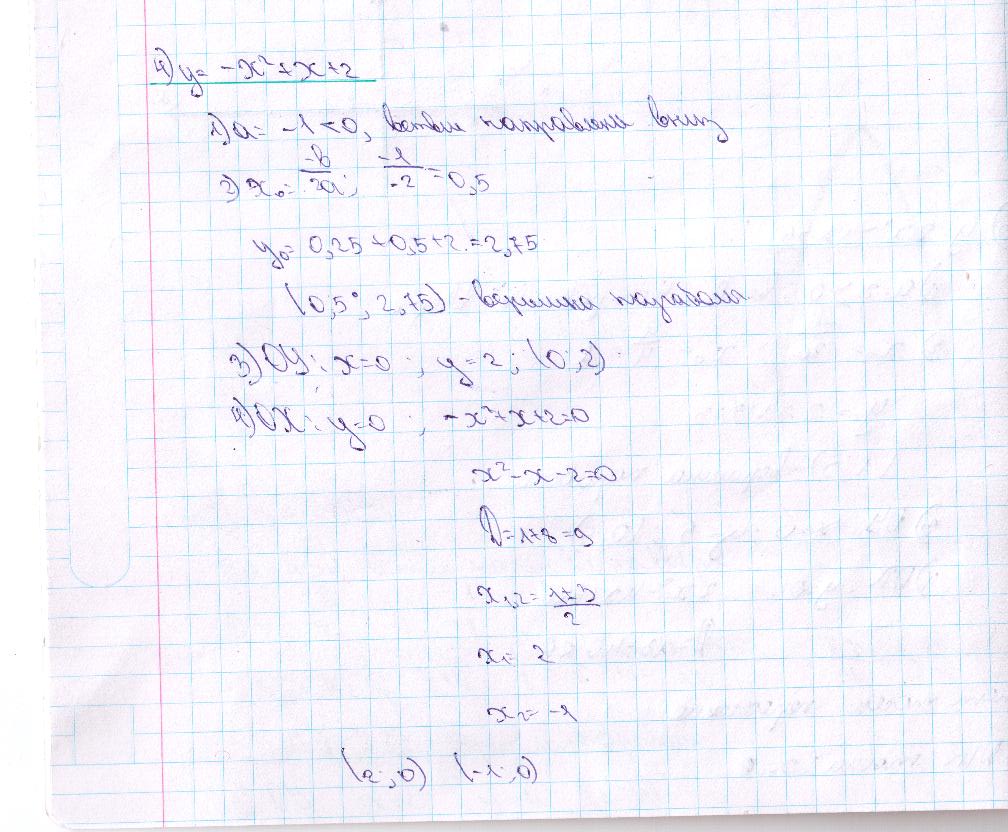 4) y = -x²+x+2
1) a = -1 < 0, ветви направлены вниз
2) x₀ = -b/2a; -1/-2 = 0,5
y₀ = 0,25+0,5+2 = 2,75
(0,5; 2,75) - вершина параболы
3) OY: x=0; y=2; (0;2)
4) OX: y=0; -x²+x+2=0
x²-x-2=0
D=1+8=9
x₁,₂ = 1±3/2
x₁ = 2
x₂ = -1
(2;0) (-1;0)